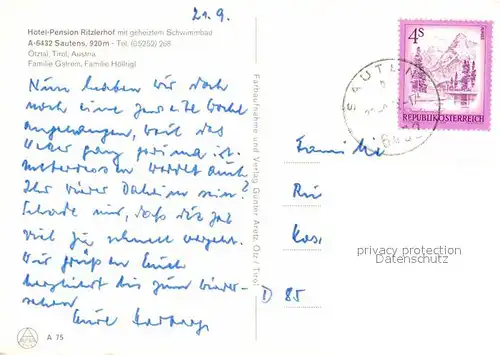 21.9.
Hotel-Pension Ritzlerhof mit geheiztem Schwimmbad
A-6432 Sautens, 920m - Tel. (05252) 268
Ötztal, Tirol, Austria
Familie Gstrein, Familie Höllrigl
Nun haben wir doch
noch eine zweite Woche
angehangen, weil das
Wetter ganz prima ist.
Inzwischen werdet auch
Ihr wieder Daheim sein?
Schade nur, daß die Zeit
viel zu schnell vergeht.
Wir grüßen Euch
herzlichst bis zum Wieder-
sehen
Eure
A 75
Farbaufnahme und Verlag Günter Arntz, Ötz / Tirol
4S
REPUBLIK ÖSTERREICH
SAUTENS
Familie
privacy protection
Datenschutz
D 85